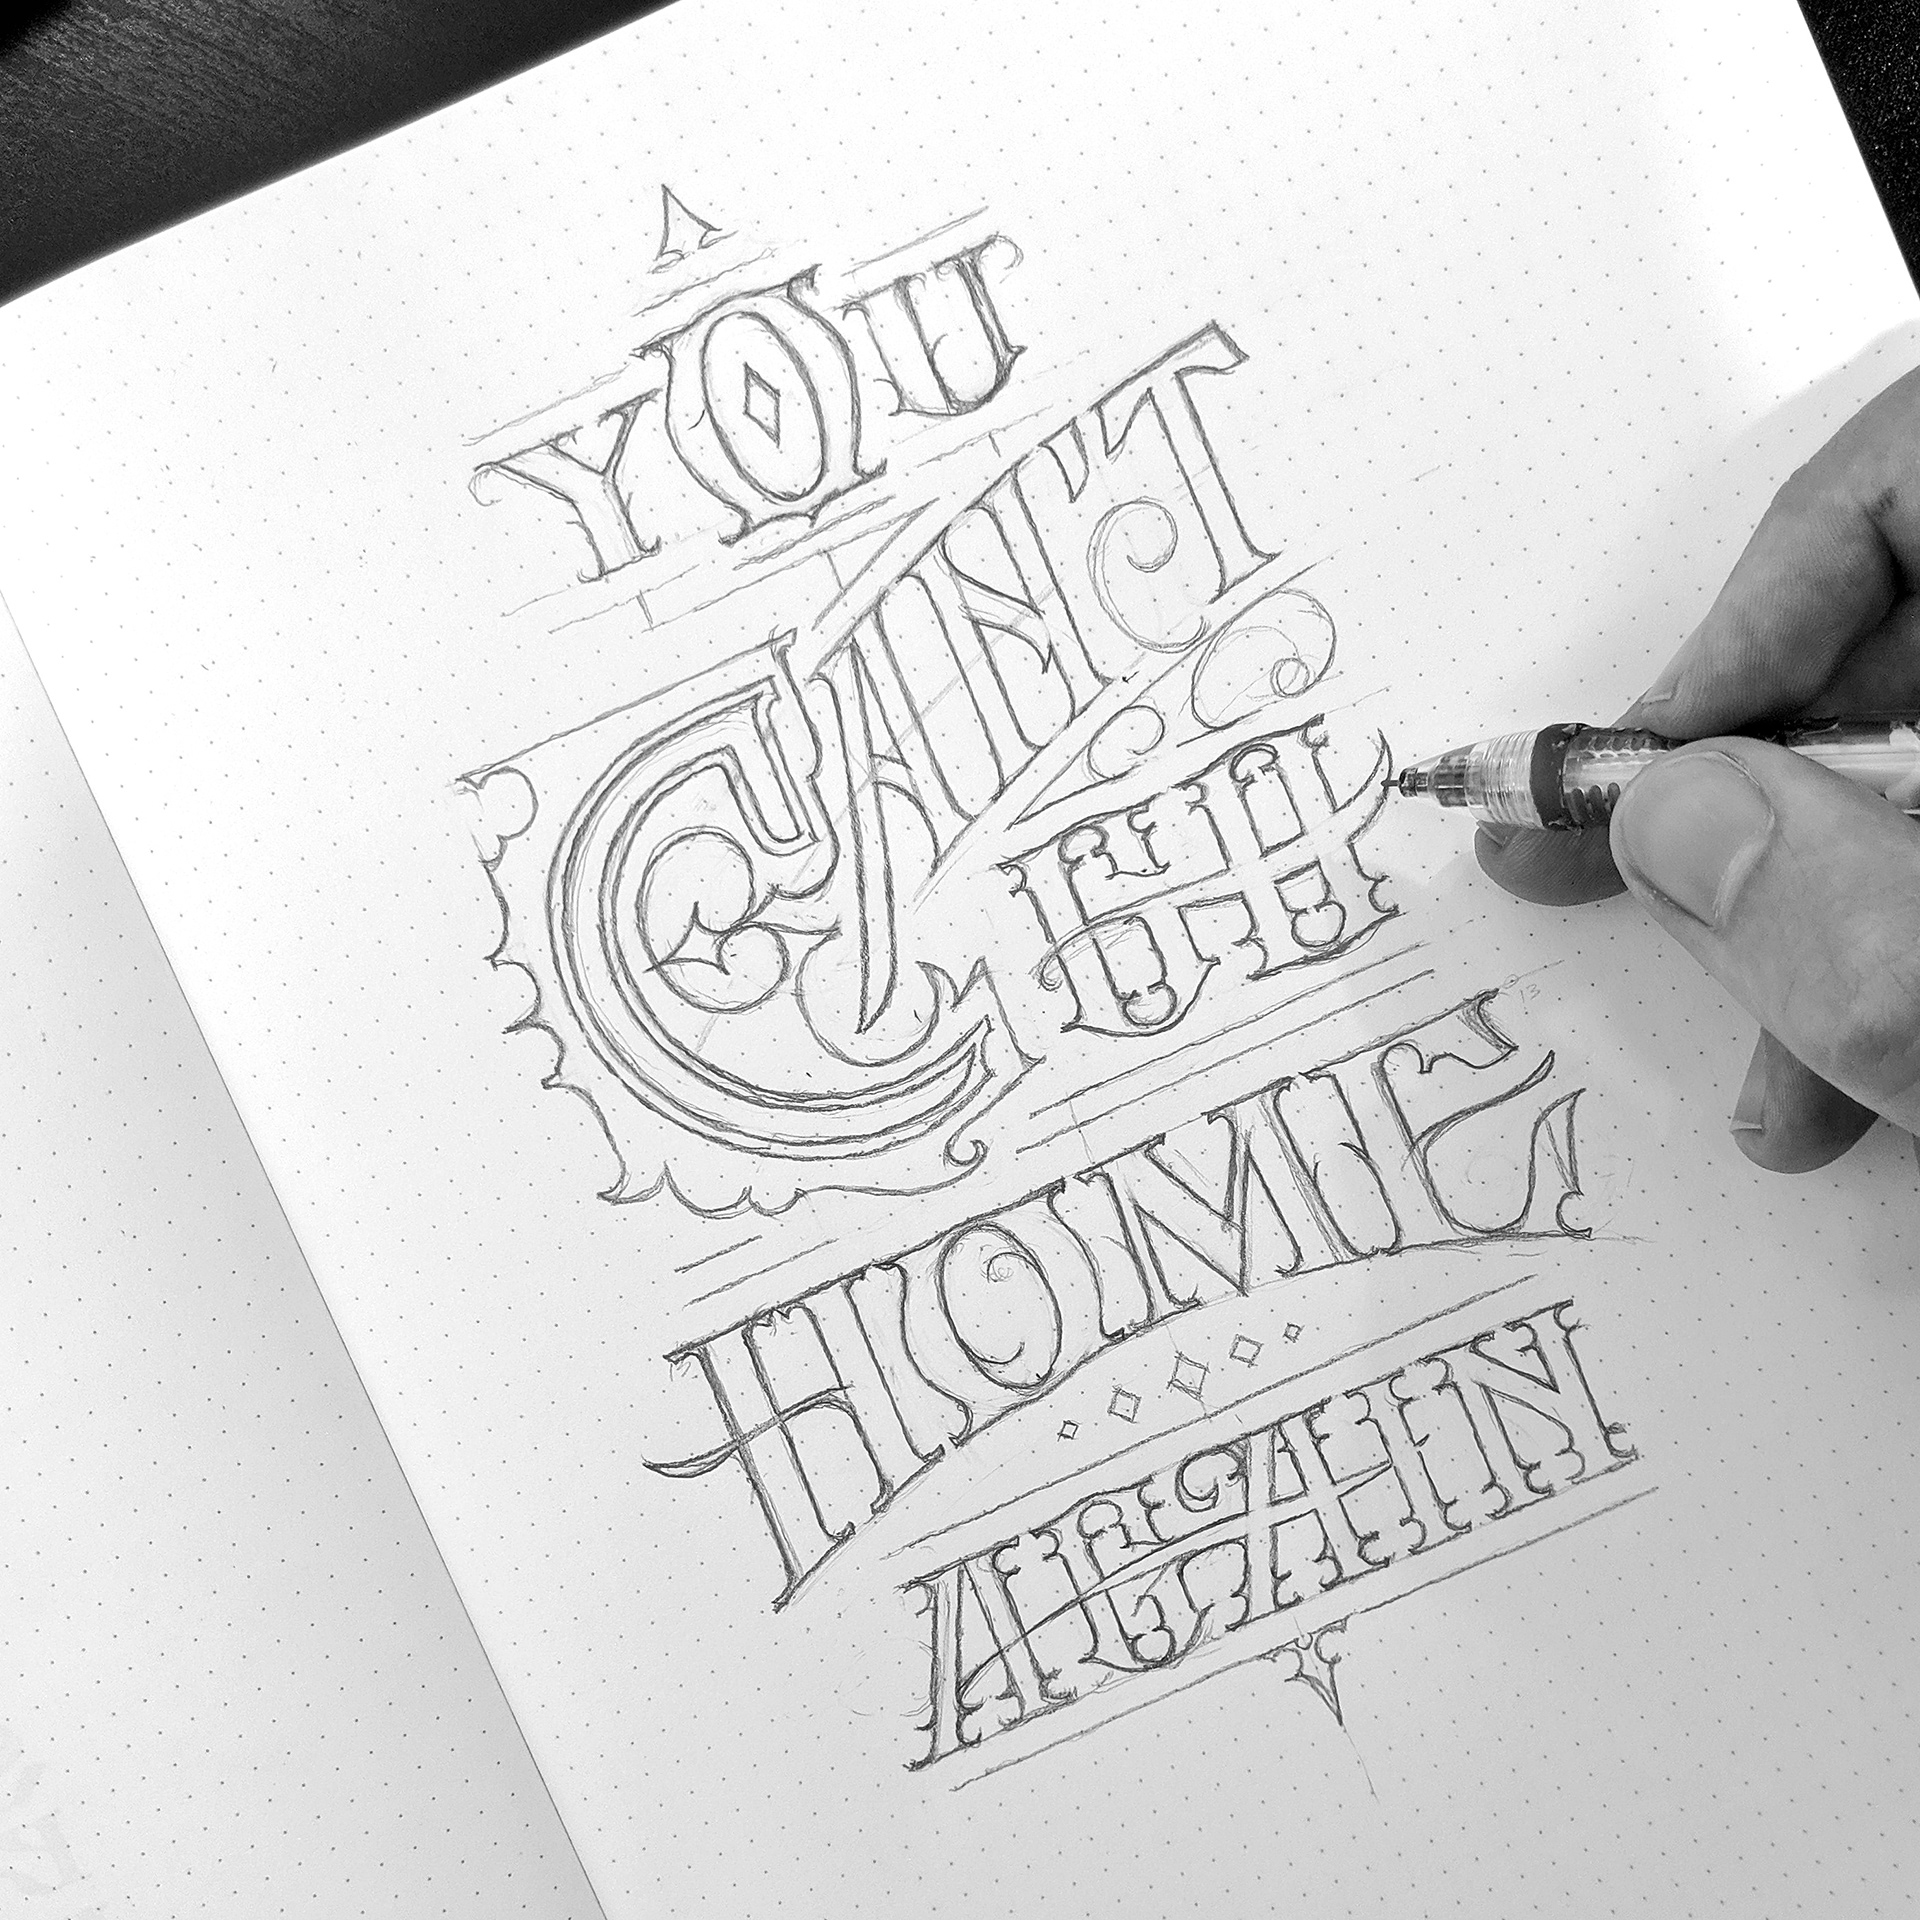 YOU
CAN'T
GO
HOME
AGAIN